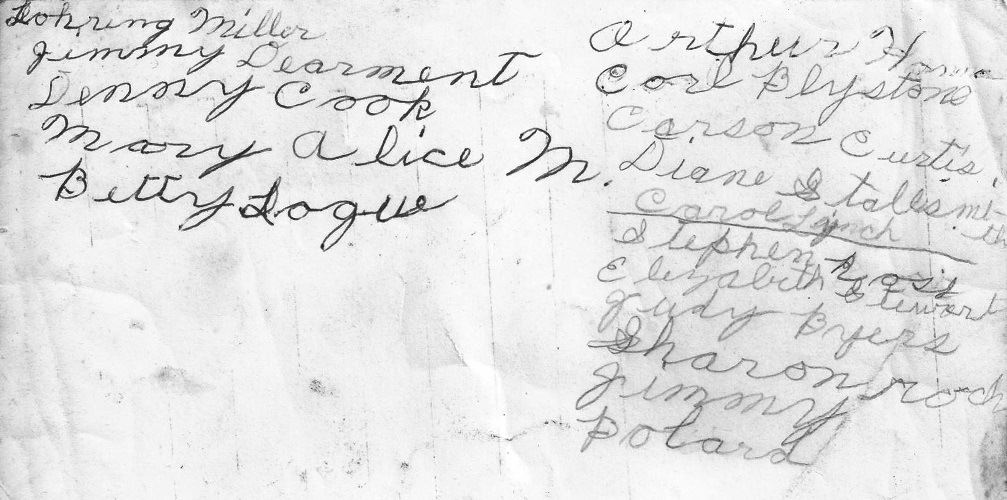 Lohring Miller
Jimmy Dearment
Denny Cook
Mary Alice M.
Betty Logue
Arthur
Carl Blystone
Carson Curtis
Diane Stallsmith
Carol Lynch
Stephen Ross
Elizabeth Stewart
Judy Byers
Sharon
Jimmy
Polard